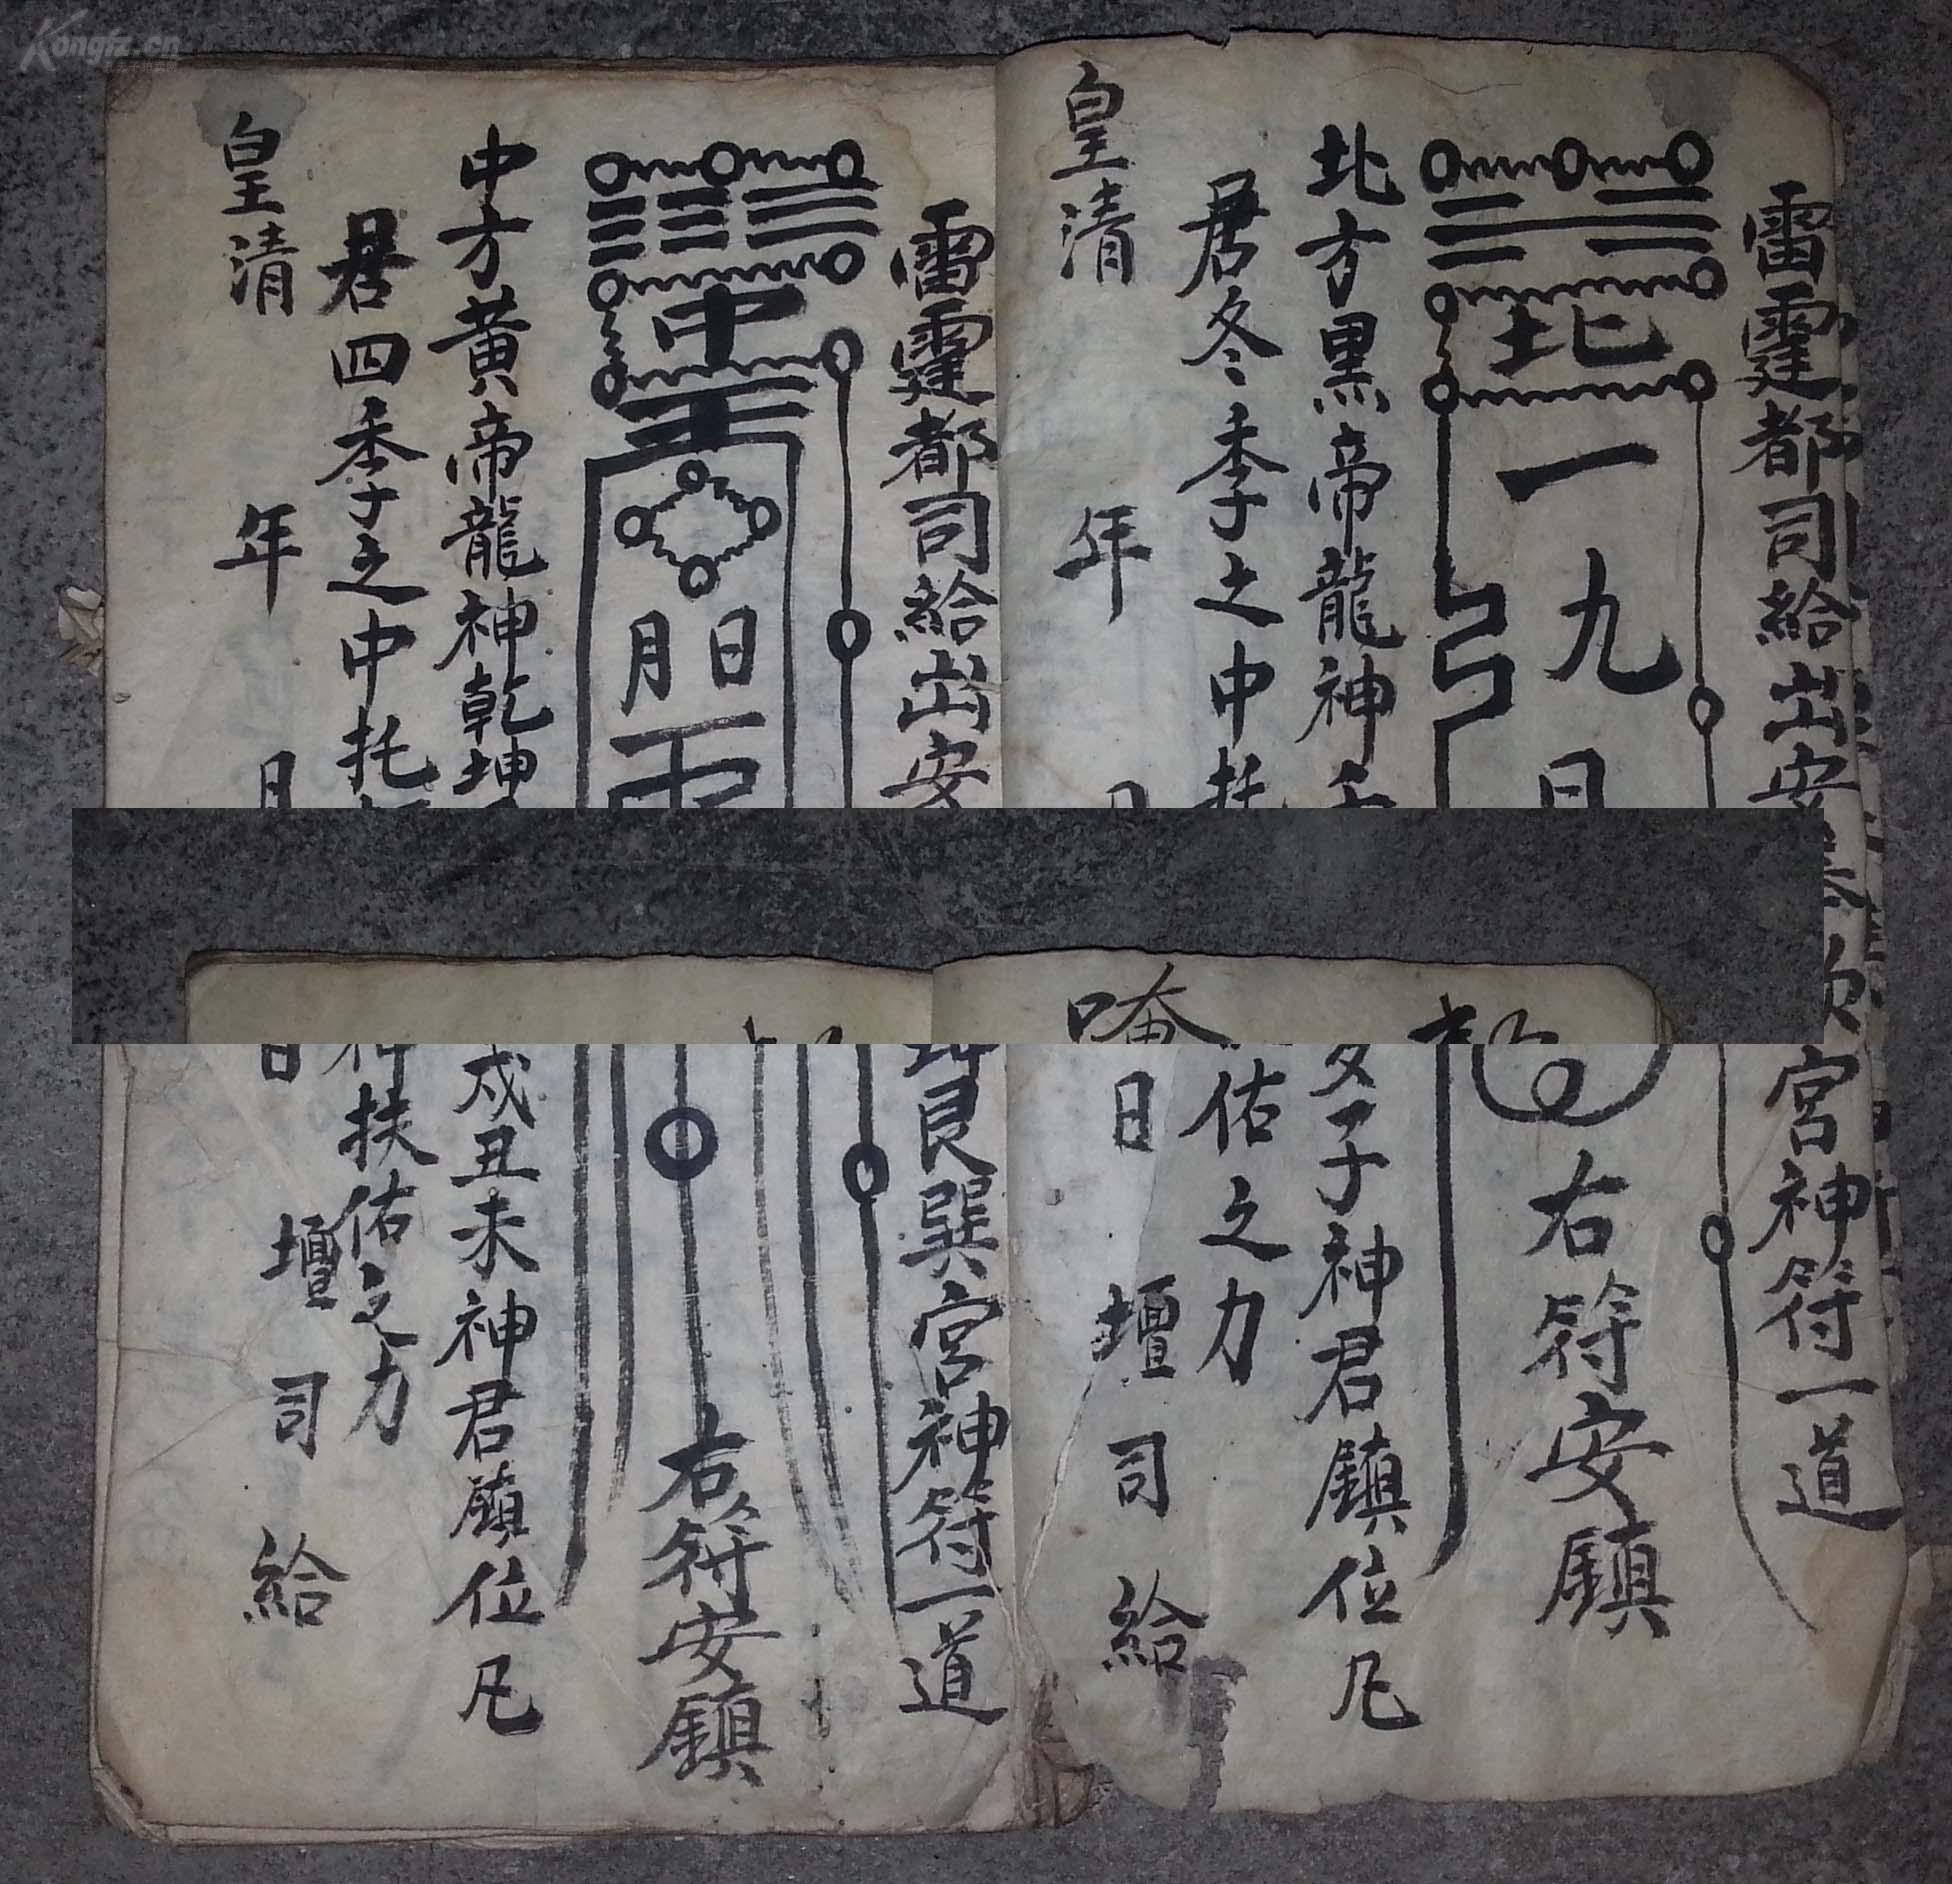 Kongfz.cn
雷霆都司給出安
宮神符一道
北
一九日
右符安鎮
北方黑帝龍神
子神君鎮位凡
居冬季之中托
佑之力
皇清 年
日 壇司給
唵
雷霆都司給出安
艮巽宮神符一道
中
日月
右符安鎮
中方黃帝龍神乾坤
戌丑未神君鎮位凡
居四季之中托
扶佑之力
皇清 年 月
日 壇司給